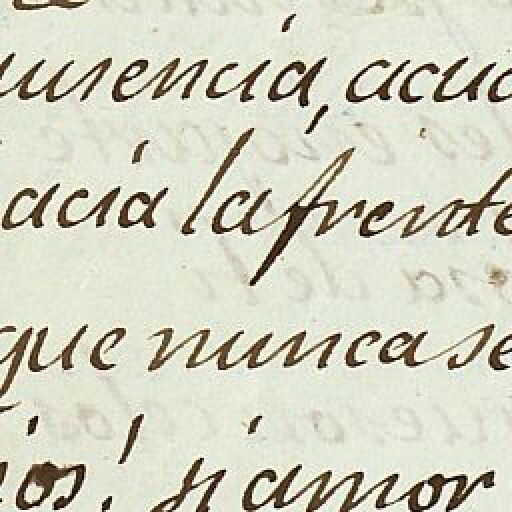 ausencia, acud
acia la frente
que nunca se
ios! si amor